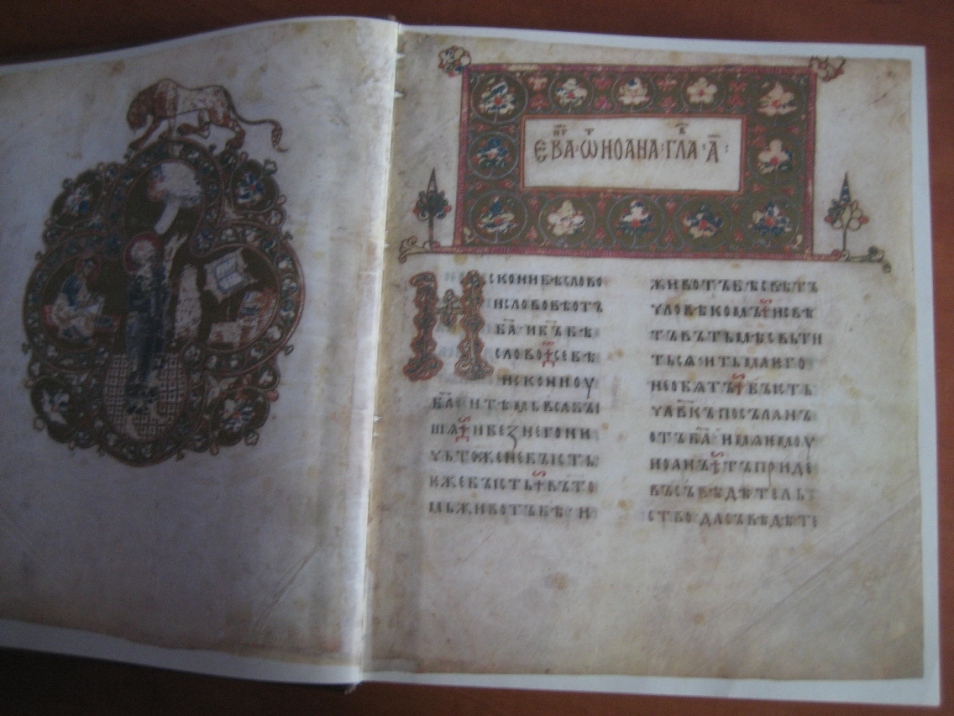 ЕВА·ѾИОАНА·ГЛА·А҃·
ИСКОНИБѢСЛОВО
ИСЛОВОБѢОТЪ
БА҃·ИБЪ҃БѢ
СЛОВО☩СЕБѢ
ИСКОНИОУ
БА҃·ИТѢМЬВСАБЫ
ШѦ☩ИБЕЗНЕГОНИ
ЧЬТОЖЕНЕБЫСТЬ·
ЕЖЕБЫСТЬ☩ВЪТО
МЬЖИВОТЪБѢ·И
ЖИВОТЪБѢСВѢТЪ
ЧЛОВѢКОМЪ☩ИСВѢ
ТЪВЪТЬМѢСВЬТИ
ТЬСѦ·ИТЬМАѤГО
НЕОБѦТЪ☩БЫСТЬ
ЧЛ҃ВКЪПОСЪЛАНЪ
ОТЪБА҃·ИМѦѤМОУ
ИОАНЪ☩ТЪПРИДЕ
ВЪСЪВѢДѢТЕЛЬ
СТВО·ДАСЪВѢДѢТЕ